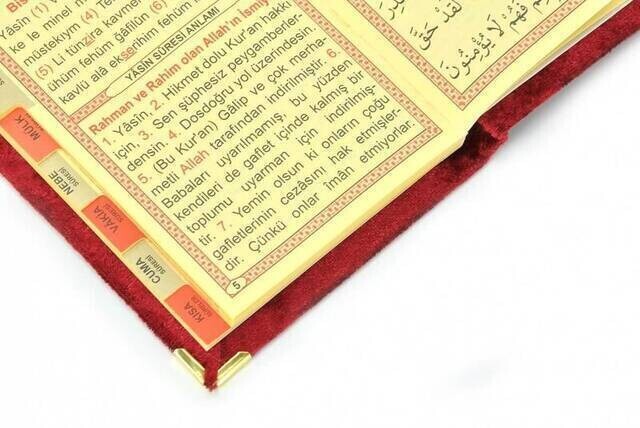 Bis
Yâsîn (1) V
ke le minel m
müstekıym (4) Te
(5) Li tünzira kavme
ühüm fehüm ğâfilûn (6)
kavlü alâ ekserihim fehüm
YASİN SÛRESİ ANLAMI
Rahman ve Rahim olan Allah'ın ismiy
1. Yâsîn, 2. Hikmet dolu Kur'an hakkı
için, 3. Sen şüphesiz peygamberler-
densin. 4. Dosdoğru yol üzerindesin.
5. (Bu Kur'an) Gâlip ve çok merha-
metli Allah tarafından indirilmiştir. 6.
Babaları uyarılmamış, bu yüzden
kendileri de gaflet içinde kalmış bir
toplumu uyarman için indirilmiş-
tir. 7. Yemin olsun ki onların çoğu
gafletlerinin cezâsını hak etmişler-
dir. Çünkü onlar îmân etmiyorlar.
5
لَقَدْ حَقَّ
فَهُمْ لَا يُؤْمِنُونَ
MÜLK
SÛRESİ
NEBE
SÛRESİ
VÂKIA
SÛRESİ
CUMA
SÛRESİ
KISA
SÛRELER